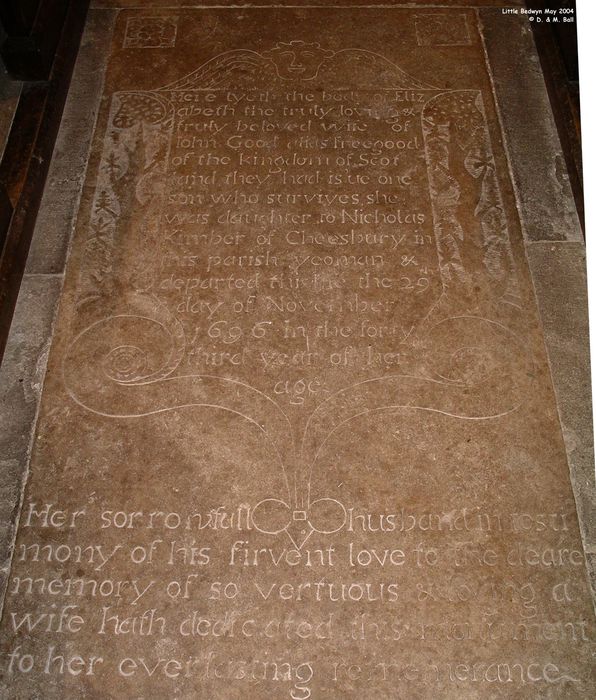 Little Bedwyn May 2004
© D. & M. Ball
Here lyeth the body of Eliz
abeth the truly loving &
truly beloved wife of
Iohn Good alias freegood
of the kingdom of Scot
land they had issue one
son who survives she
was daughter to Nicholas
Kimber of Cheesbury in
this parish yeoman &
departed this life the 29
day of November
1696 In the forty
third year of her
age
Her sorrowfull husband in testi
mony of his firvent love to the deare
memory of so vertuous & loving a
wife hath dedicated this monument
to her everlasting rememerance